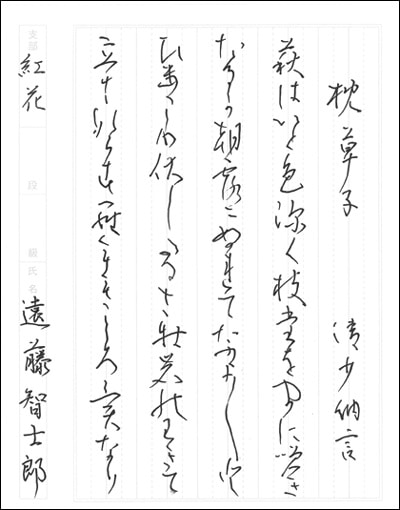 枕草子 清少納言
萩はいと色深く枝たをやかに咲き
たるが朝露にぬれてなよなよと
ひろごり伏したるさ牡鹿のわきて
立ち
支部 紅花 段 級 氏名 遠藤智士郎